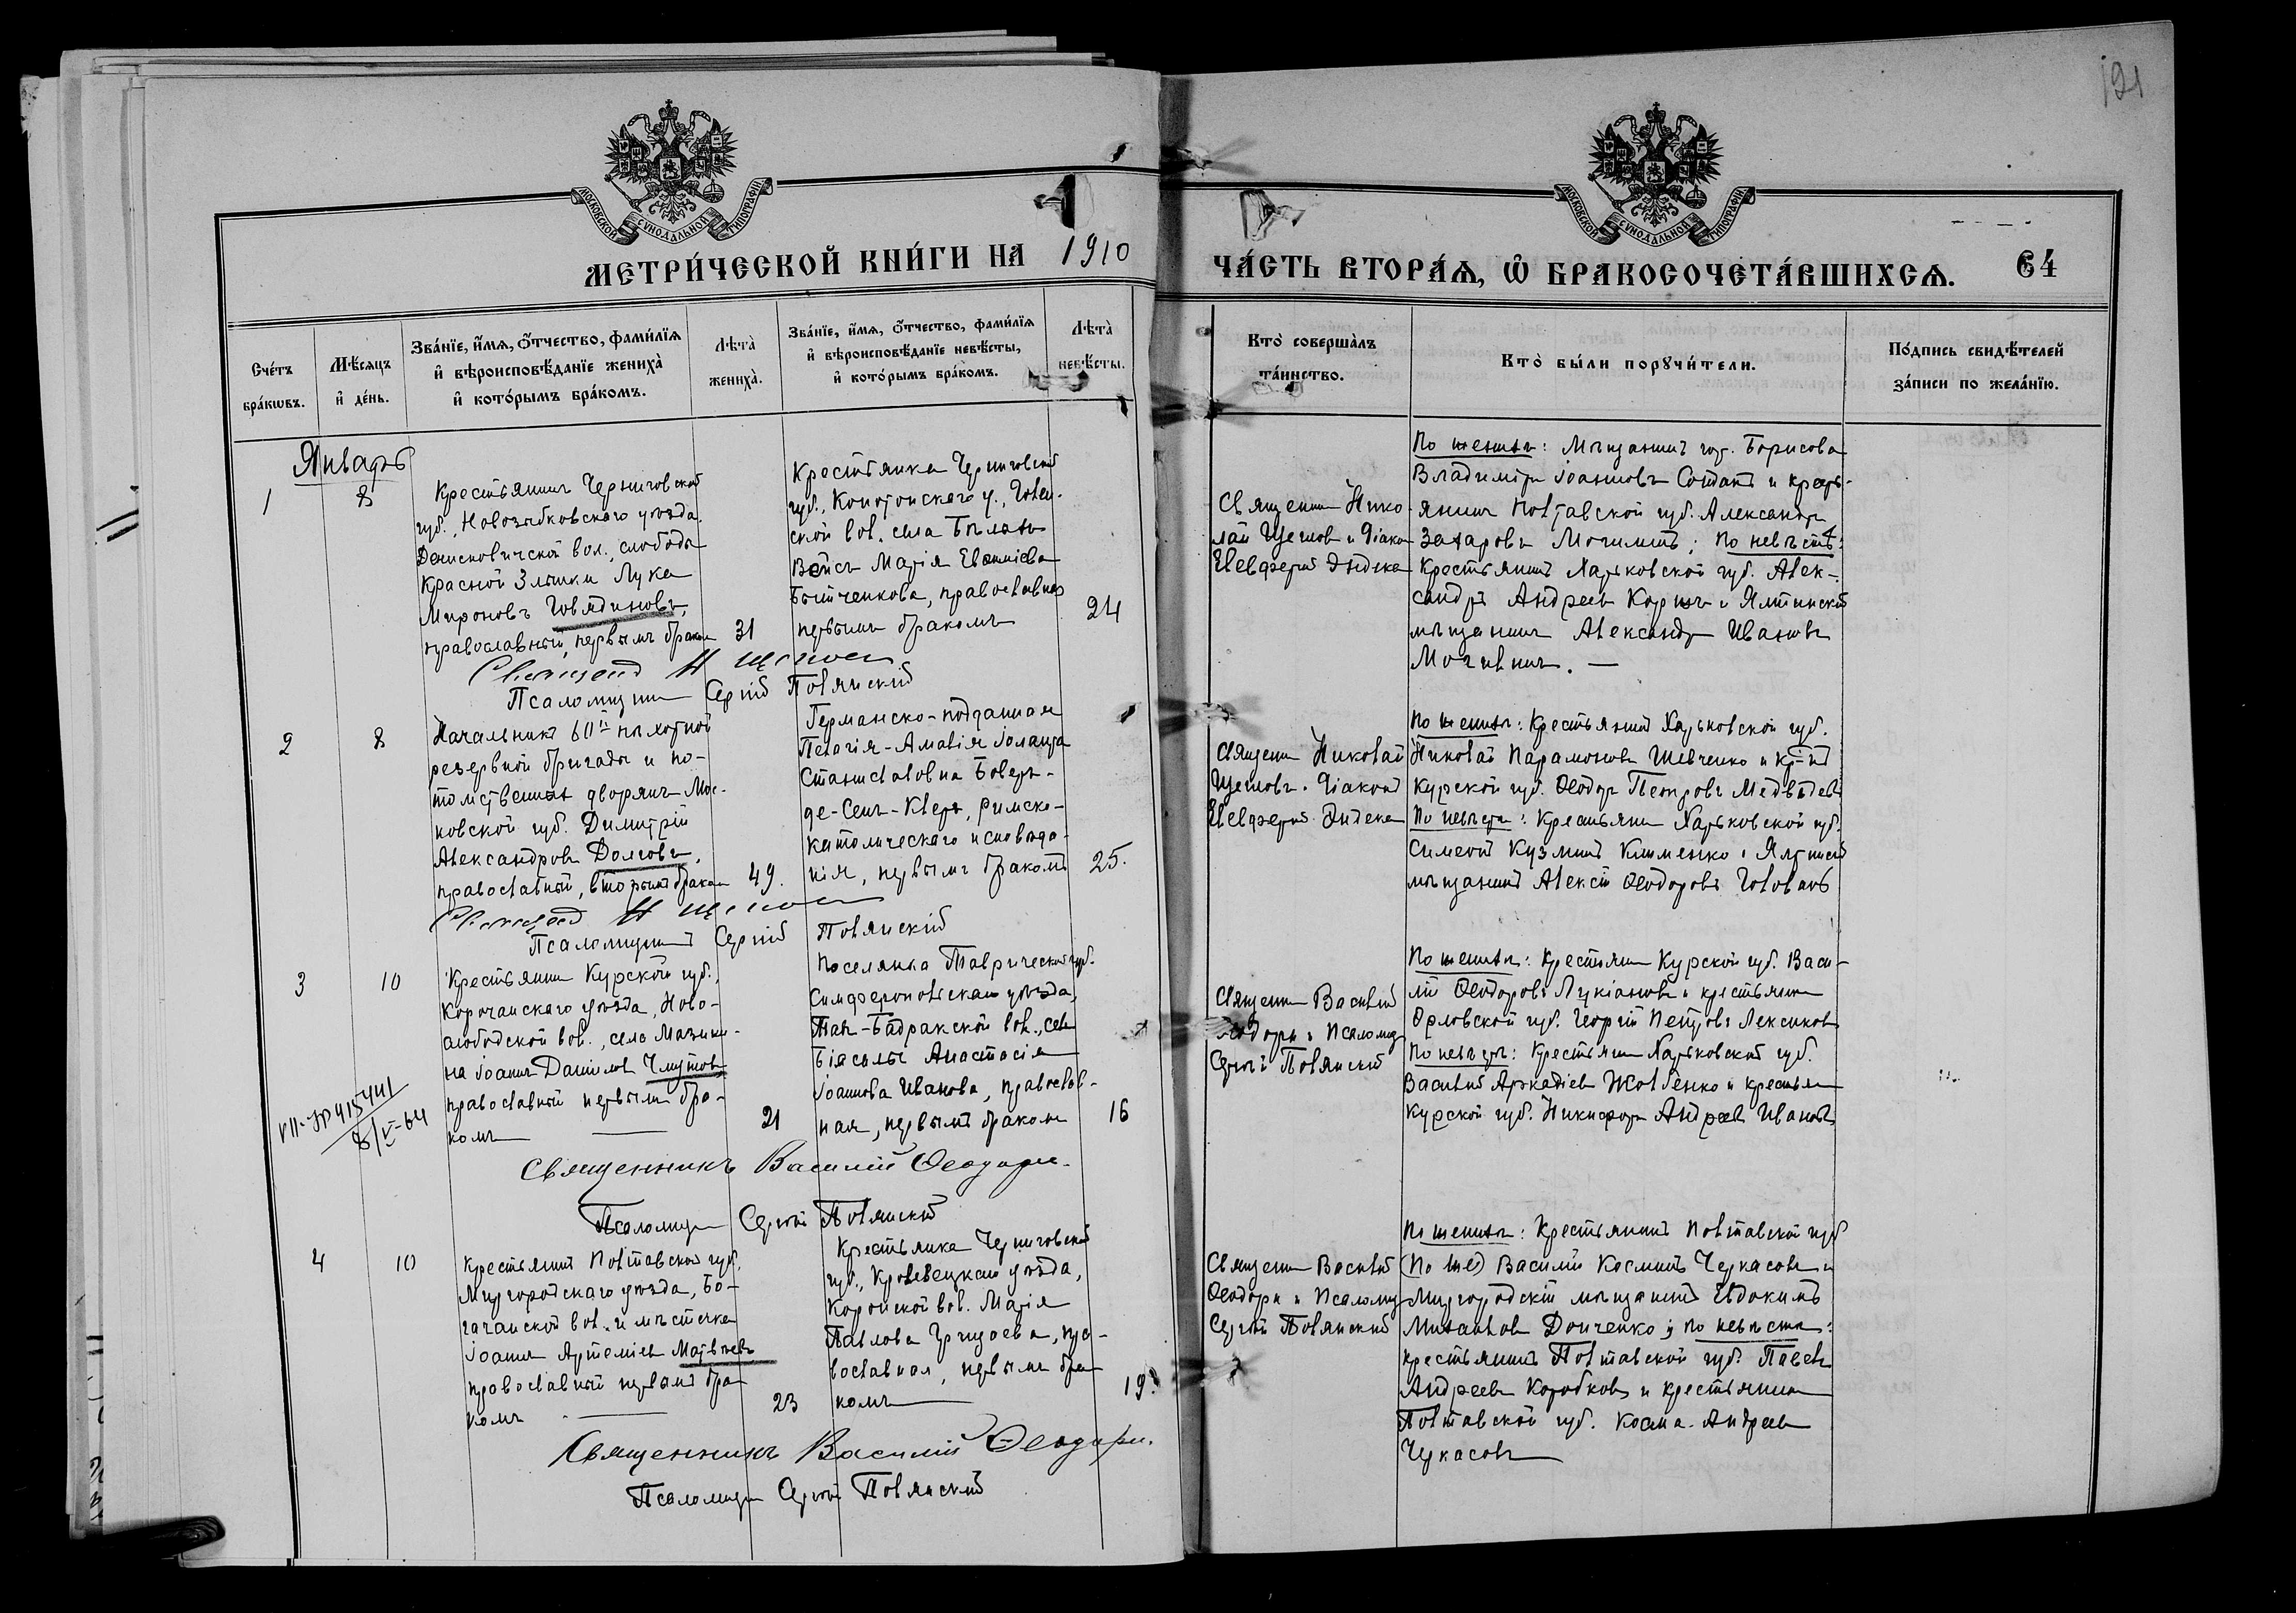 191
МОСКОВСКОЙ СѴНОДАЛЬНОЙ ТИПОГРАФІИ
МОСКОВСКОЙ СѴНОДАЛЬНОЙ ТИПОГРАФІИ
МЕТРИ́ЧЕСКОЙ КНИ́ГИ НА 1910
ЧА́СТЬ ВТОРА́Ѧ, Ѽ БРАКОСОЧЕТА́ВШИХСѦ. 64
Сче́тъ бра́кѡвъ.
Мѣ́сѧцъ и҆ де́нь.
Зва́нїе, и҆́мѧ, ѻ҆́тчество, фами́лїѧ
и҆ вѣроисповѣ́данїе жениха̀
и҆ кото́рымъ бра́комъ.
Лѣта̀ жениха̀.
Зва́нїе, и҆́мѧ, ѻ҆́тчество, фами́лїѧ
и҆ вѣроисповѣ́данїе невѣ́сты,
и҆ кото́рымъ бра́комъ.
Лѣта̀ невѣ́сты.
Кто̀ соверша́лъ
та́инство.
Кто̀ бы́ли порꙋчи́тели.
По́дпись свидѣ́телей
за́писи по жела́нїю.
Январь
1
8
Крестьянинъ Черниговской
губ., Новозыбковскаго уѣзда,
Денисковичской вол., слободы
Красной Злынки Лука
Мироновъ Говядиновъ,
православный, первымъ бракомъ
31
Крестьянка Черниговской
губ., Конотопскаго у.,
ской вол. села
Марія
православная
первымъ бракомъ
24
Священникъ Нико-
лай Щегловъ и Діаконъ
Елевферій Эндека
По женихѣ: Мѣщанинъ гор. Борисова
Владиміръ Іоанновъ и кресть-
янинъ Полтавской губ. Александръ
Захаровъ по невѣстѣ:
Крестьянинъ Харьковской губ. Алек-
сандръ Андреевъ и Ялтинскій
мѣщанинъ Александръ Ивановъ
Священникъ Н Щегловъ
Псаломщикъ Сергій Полянскій
2
8
Начальникъ 60й пѣхотной
резервной бригады и по-
томственный дворянинъ Мос-
ковской губ. Димитрій
Александровъ Долговъ,
православный, вторымъ бракомъ
49.
Германско-подданная
Пелагія-Амалія Іоланта
Станиславовна
де-Сенъ-Клеръ, римско-
католическаго исповѣда-
нія, первымъ бракомъ
25.
Священникъ Николай
Щегловъ и Діаконъ
Елевферій Эндека
По женихѣ: Крестьянинъ Харьковской губ.
Николай Парамоновъ Шевченко и кр-нъ
Курской губ. Ѳеодоръ Петровъ Медвѣдевъ
По невѣстѣ: Крестьянинъ Харьковской губ.
Симеонъ Кузминъ Клименко и Ялтинскій
мѣщанинъ Алексій Ѳеодоровъ Головань
Священникъ Н Щегловъ
Псаломщикъ Сергій Полянскій
3
10
Крестьянинъ Курской губ.,
Корочанскаго уѣзда, Ново-
слободской вол., села Мазики-
на Іоаннъ Даніиловъ Чмутовъ
православный первымъ бра-
комъ
21
Поселянка Таврической губ.
Симферопольскаго уѣзда,
Тав-Бадракской вол., села
Біясалы Анастасія
Іоаннова Иванова, православ-
ная, первымъ бракомъ
16
Священникъ Василій
Ѳеодори и Псаломщ
Сергій Полянскій
По женихѣ: Крестьянинъ Курской губ. Васи-
лій Ѳеодоровъ Лукіановъ и крестьянинъ
Орловской губ. Георгій Петровъ Лексиковъ
По невѣстѣ: Крестьянинъ Харьковской губ.
Василій Аркадіевъ Жовбенко и крестьянинъ
Курской губ. Никифоръ Андреевъ Ивановъ
VII-ЗР 415441
8/V-64
Священникъ Василій Ѳеодори.
Псаломщикъ Сергій Полянскій
4
10
Крестьянинъ Полтавской губ.
Миргородскаго уѣзда, Бо-
гачанской вол. и мѣстечка
Іоаннъ Артеміевъ Матвѣевъ
православный первымъ бра-
комъ
23
Крестьянка Черниговской
губ., Кролевецкаго уѣзда,
Коропской вол. Марія
Павлова пра-
вославная, первымъ бра-
комъ
19.
Священникъ Василій
Ѳеодори и Псаломщ
Сергій Полянскій
По женихѣ: Крестьянинъ Полтавской губ
(По же) Василій Косминъ Черкасовъ и
Миргородскій мѣщанинъ Евдокимъ
Михайловъ Донченко; по невѣстѣ:
крестьянинъ Полтавской губ. Павелъ
Андреевъ Коробковъ и крестьянинъ
Полтавской губ. Косма Андреевъ
Черкасовъ
Священникъ Василій Ѳеодори.
Псаломщикъ Сергій Полянскій